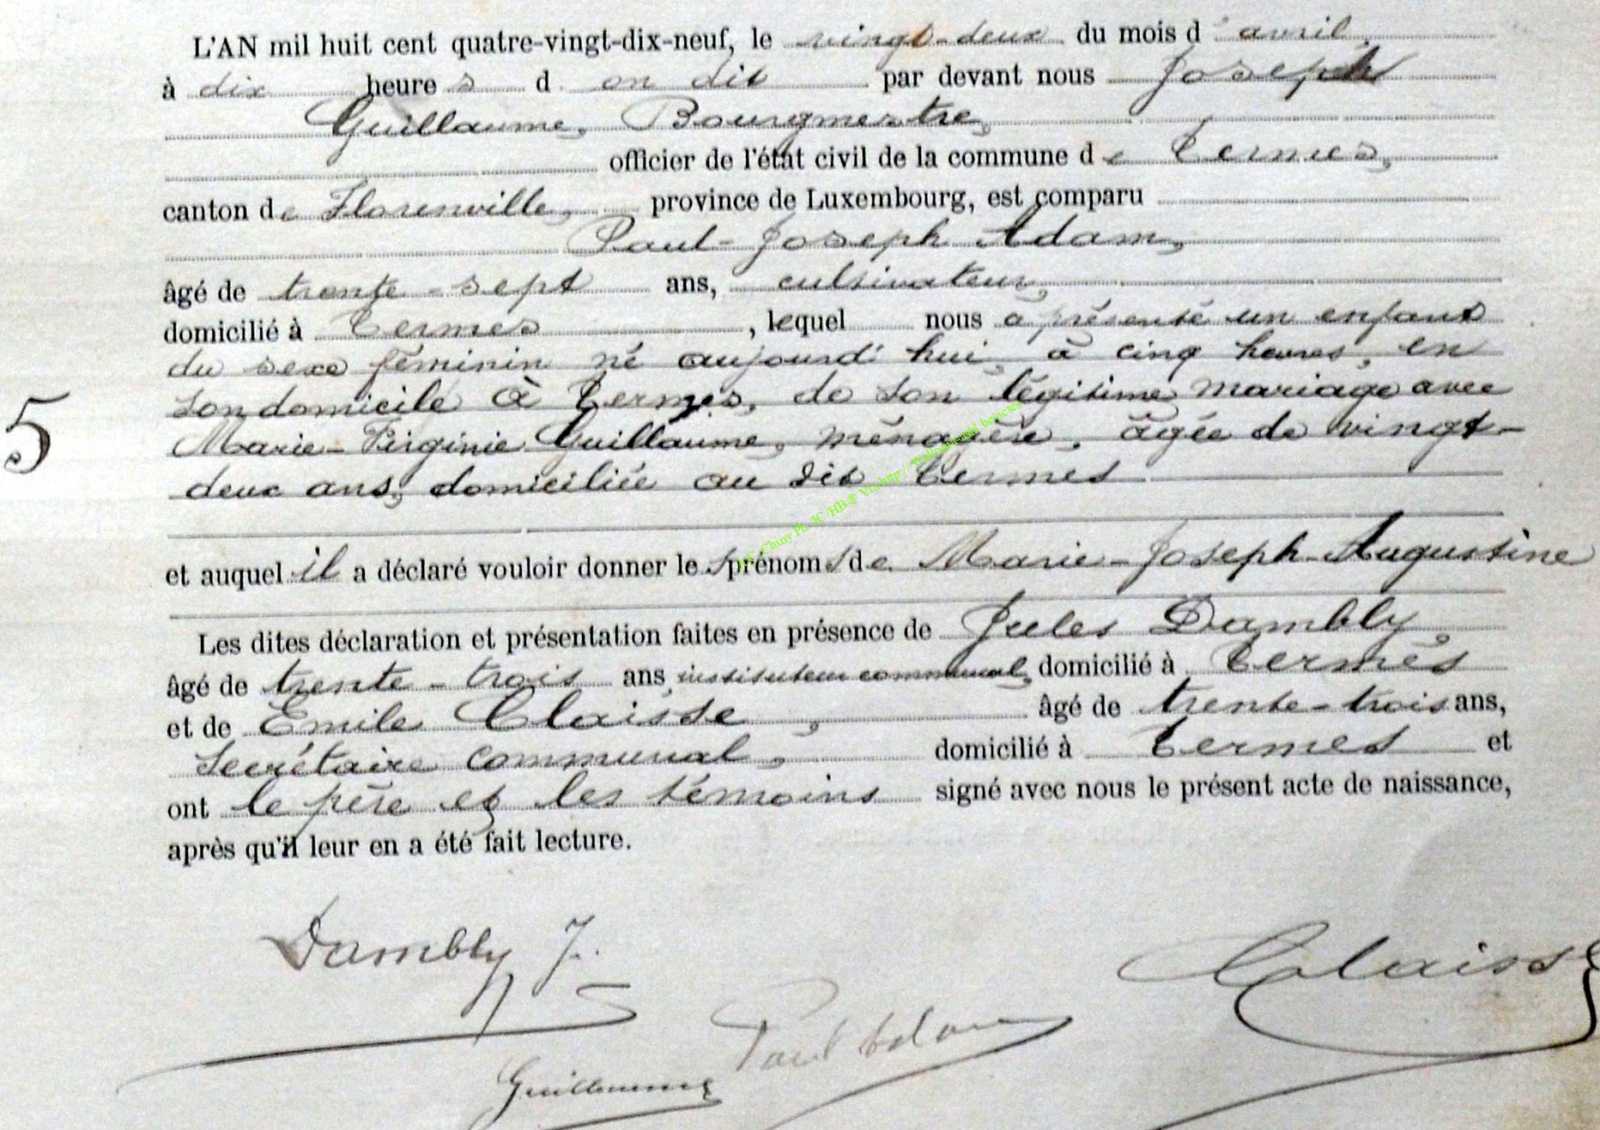 L'AN mil huit cent quatre-vingt-dix-neuf, le vingt-deux du mois d'avril,
à dix heures d on dit par devant nous Joseph
Guillaume, Bourgmestre,
officier de l'état civil de la commune de Termes,
canton de Florenville, province de Luxembourg, est comparu
Paul-Joseph Adam,
âgé de trente-sept ans, cultivateur,
domicilié à Termes, lequel nous a présenté un enfant
du sexe féminin né aujourd'hui, à cinq heures, en
son domicile à Termes, de son légitime mariage avec
5
Marie-Virginie Guillaume, ménagère, âgée de vingt-
deux ans, domiciliée au dit Termes
et auquel il a déclaré vouloir donner les prénoms de Marie-Joseph-Augustine
Les dites déclaration et présentation faites en présence de Jules Dambly,
âgé de trente-trois ans instituteur communal, domicilié à Termes
et de Emile Claisse, âgé de trente-trois ans,
Secrétaire communal, domicilié à Termes et
ont le père et les témoins signé avec nous le présent acte de naissance,
après qu'il leur en a été fait lecture.
Dambly J.
Claisse
Paul Adam
Guillaume